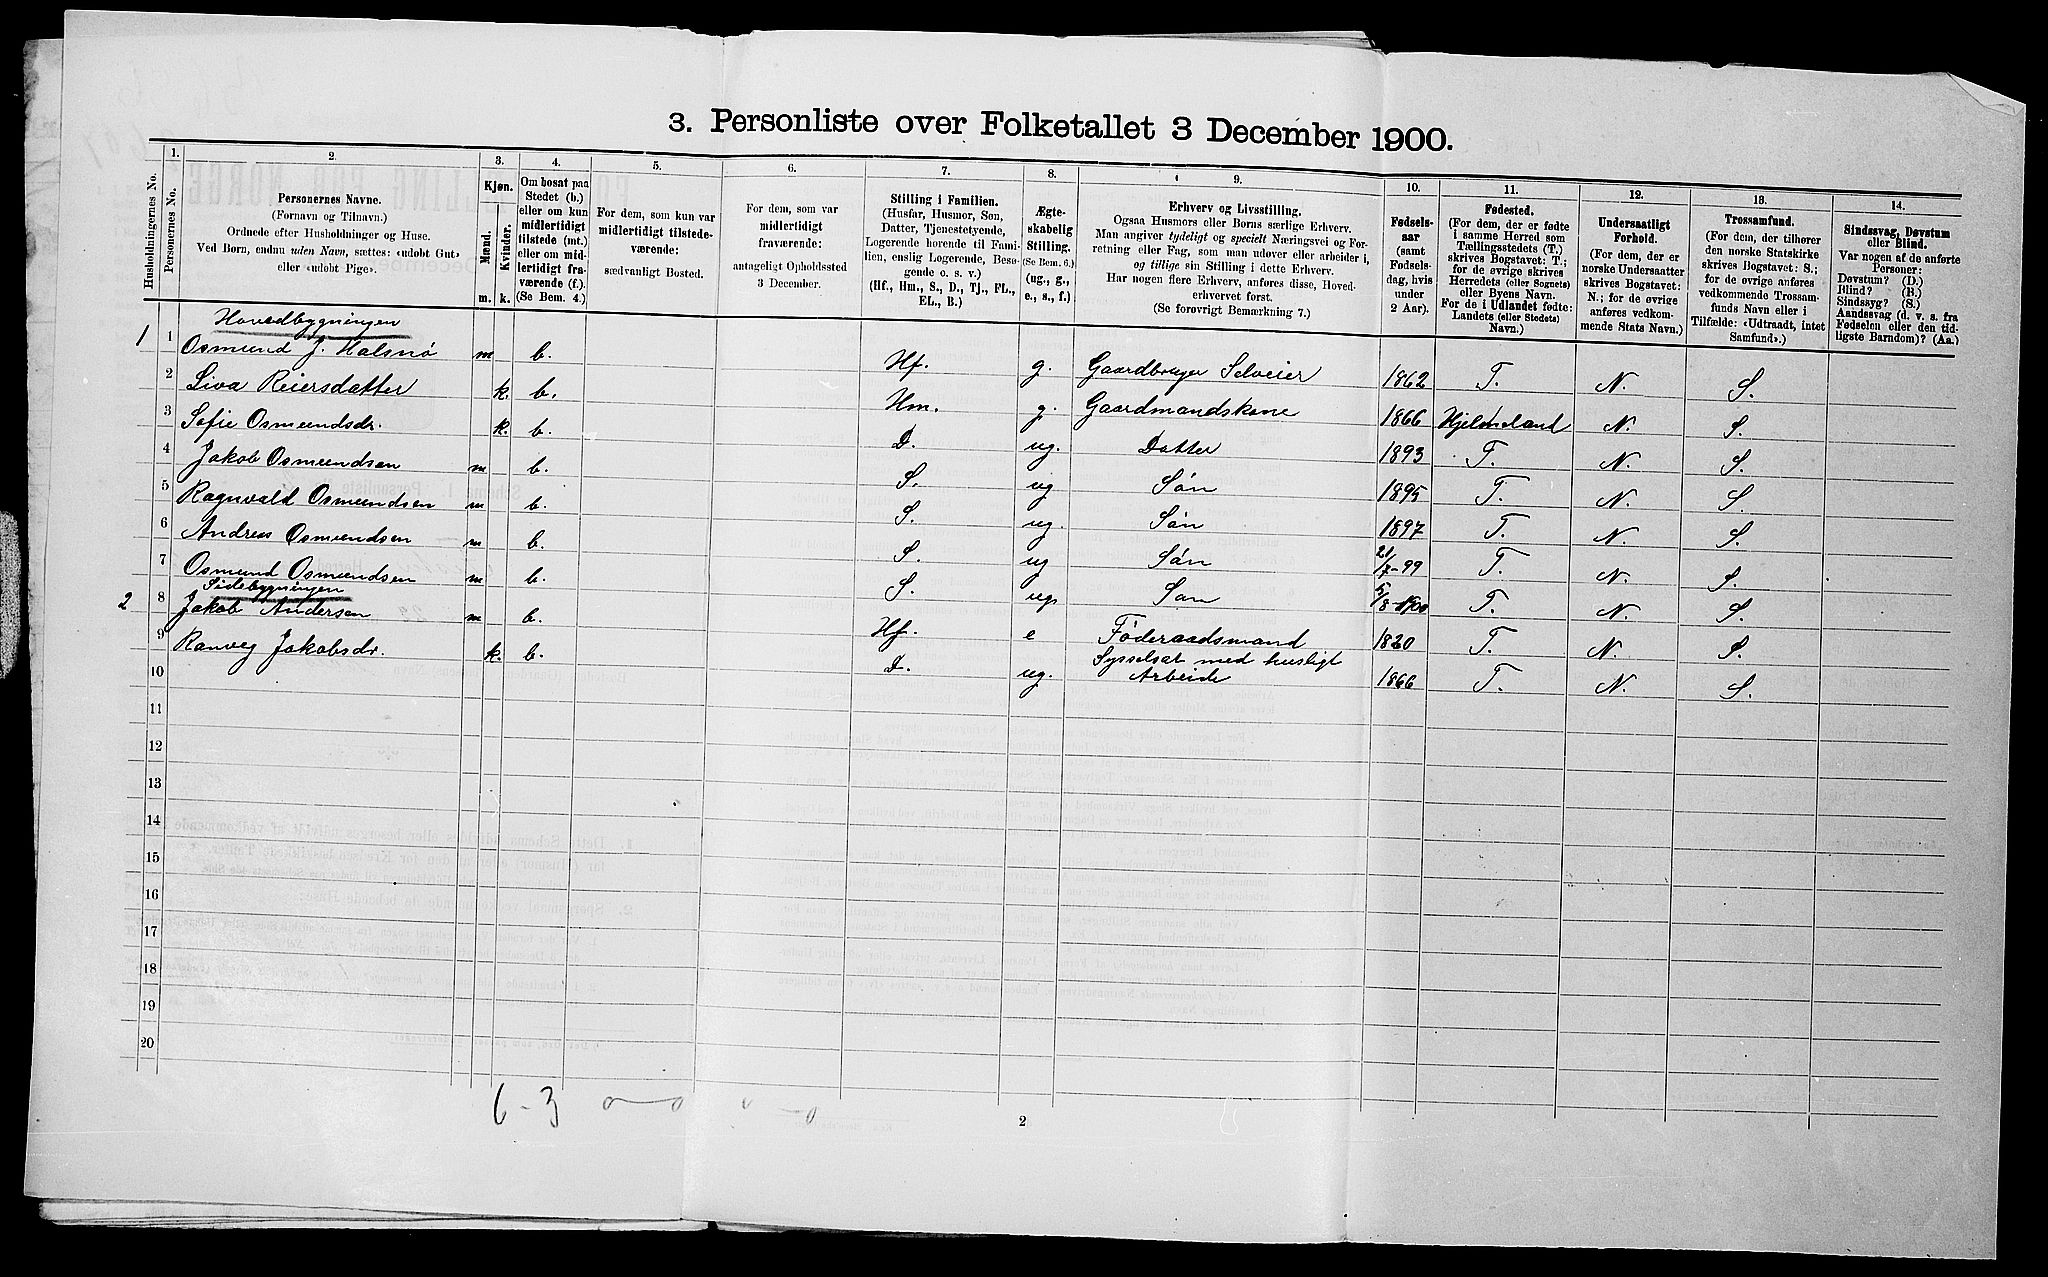 3. Personliste over Folketallet 3 December 1900.
Husholdningernes No.
1.
Personernes No.
2.
Personernes Navne.
(Fornavn og Tilnavn.)
Ordnede efter Husholdninger og Huse.
Ved Børn, endnu uden Navn, sættes: «udøbt Gut»
eller «udøbt Pige».
3.
Kjøn.
Mænd.
Kvinder.
m. k.
4.
Om bosat paa
Stedet (b.)
eller om kun
midlertidigt
tilstede (mt.)
eller om mid-
lertidigt fra-
værende (f.)
(Se Bem. 4.)
5.
For dem, som kun var
midlertidigt tilstede-
værende:
sædvanligt Bosted.
6.
For dem, som var
midlertidigt
fraværende:
antageligt Opholdssted
3 December.
7.
Stilling i Familien.
(Husfar, Husmor, Søn,
Datter, Tjenestetyende,
Logerende hørende til Fami-
lien, enslig Logerende, Besø-
gende o. s. v.)
(Hf., Hm., S., D., Tj., FL.,
EL., B.)
8.
Ægte-
skabelig
Stilling.
(Se Bem. 6.)
(ug., g.,
e., s., f.)
9.
Erhverv og Livsstilling.
Ogsaa Husmors eller Børns særlige Erhverv.
Man angiver tydeligt og specielt Næringsvei og For-
retning eller Fag, som man udøver eller arbeider i,
og tillige sin Stilling i dette Erhverv.
Har nogen flere Erhverv, anføres disse, Hoved-
erhvervet først.
(Se forøvrigt Bemærkning 7.)
10.
Fødsels-
aar
(samt
Fødsels-
dag, hvis
under
2 Aar).
11.
Fødested.
(For dem, der er fødte
i samme Herred som
Tællingsstedets (T.)
skrives Bogstavet: T.;
for de øvrige skrives
Herredets (eller Sognets)
eller Byens Navn.
For de i Udlandet fødte:
Landets (eller Stedets)
Navn.)
12.
Undersaatligt
Forhold.
(For dem, der er
norske Undersaatter
skrives Bogstavet:
N.; for de øvrige
anføres vedkom-
mende Stats Navn.)
13.
Trossamfund.
(For dem, der tilhører
den norske Statskirke
skrives Bogstavet: S.;
for de øvrige anføres
vedkommende Trossam-
funds Navn eller i
Tilfælde: «Udtraadt, intet
Samfund».)
14.
Sindssvag, Døvstum
eller Blind.
Var nogen af de anførte
Personer:
Døvstum? (D.)
Blind? (B.)
Sindssyg? (S.)
Aandssvag (d. v. s. fra
Fødselen eller den tid-
ligste Barndom)? (Aa.)
Hovedbygningen
1 1 Osmund J. Halsnø m b. Hf. g. Gaardbruger Selveier 1862 T. N. S.
2 Siva Reiersdatter k. b. Hm. g. Gaardmandskone 1866 Hjelmeland N. S.
3 Sofie Osmundsdr. k. b. D. ug. Datter 1893 T. N. S.
4 Jakob Osmundsen m b. S. ug Søn 1895 T. N. S.
5 Ragnvald Osmundsen m b. S. ug. Søn 1897 T. N. S.
6 Andreas Osmundsen m b. S. ug Søn 21/7-99 T. N. S.
7 Osmund Osmundsen m b. S. ug. Søn 5/8-1900 T. N. S.
Sidebygningen
2 8 Jakob Andersen m b. Hf. e Føderaadsmand 1820 T. N. S.
9 Ranveg Jakobsdr. k. b. D. ug. Sysselsat med husligt
Arbeide 1866 T. N. S.
10
11
12
13
14
15
16
17
18
19
20
6-3 0-0 0-0
2